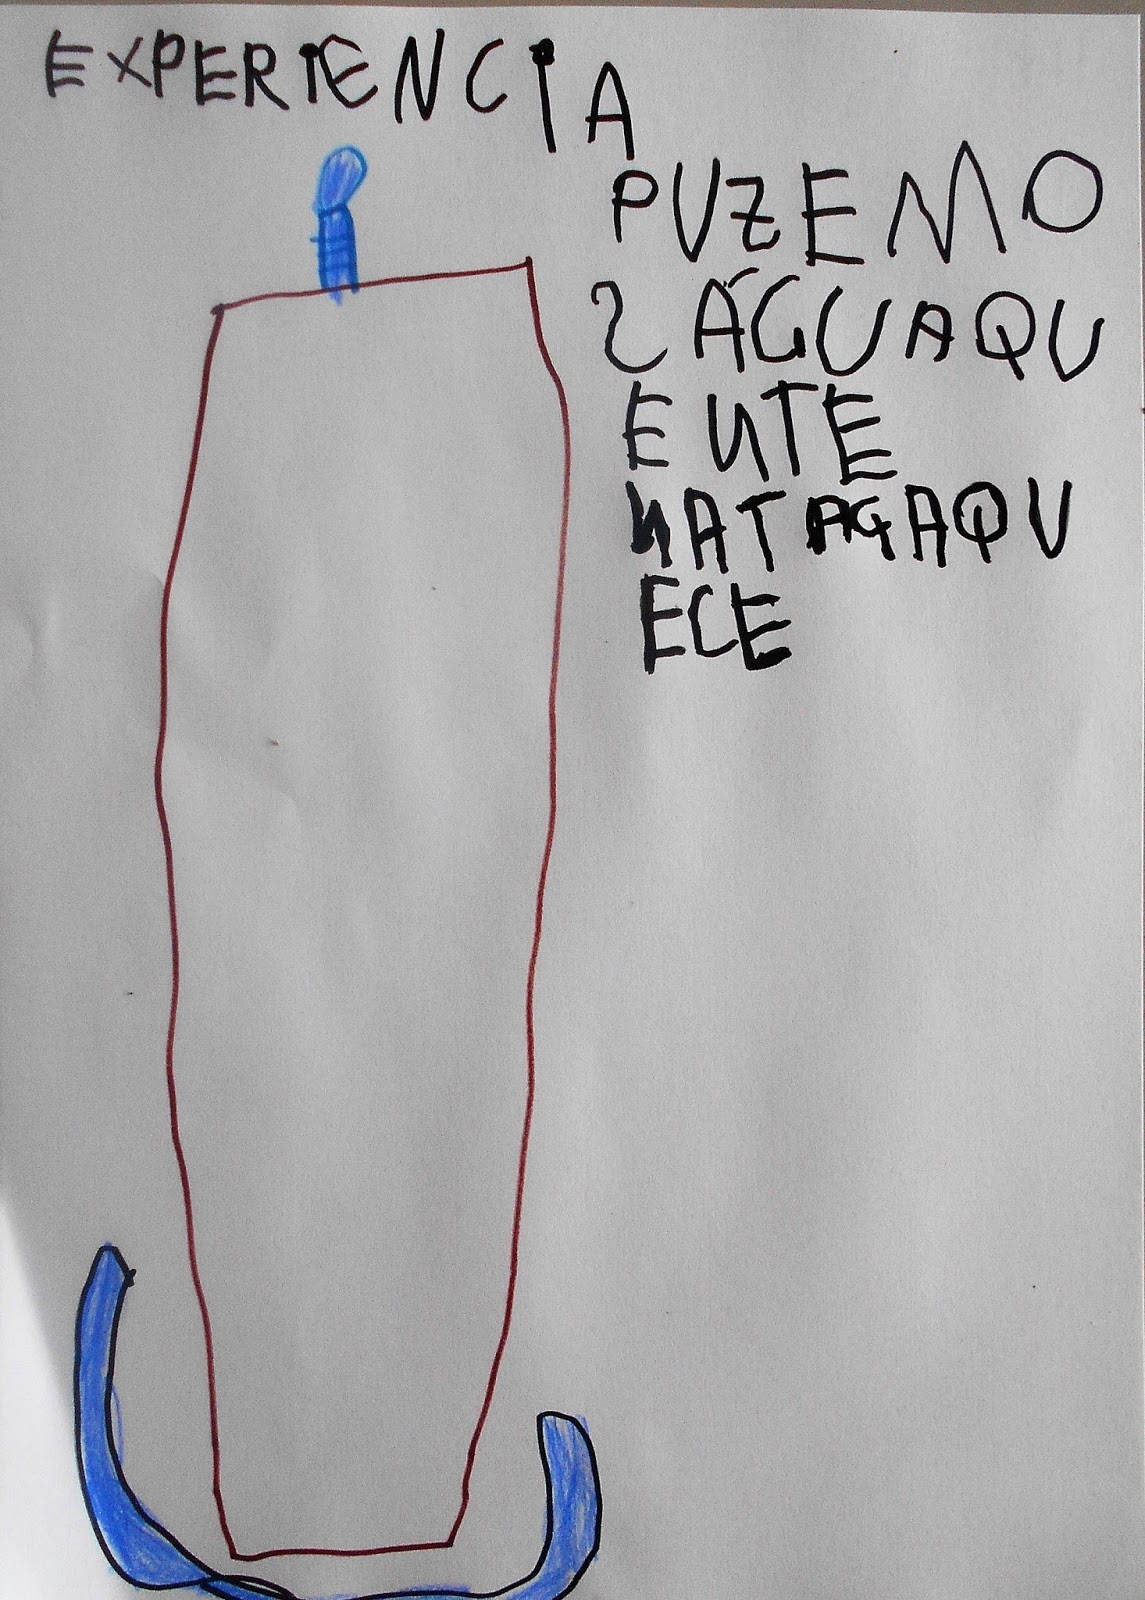 EXPERIENCIA
PUZEMO
SÁGUAQU
ENTE
NATAGAQU
ECE